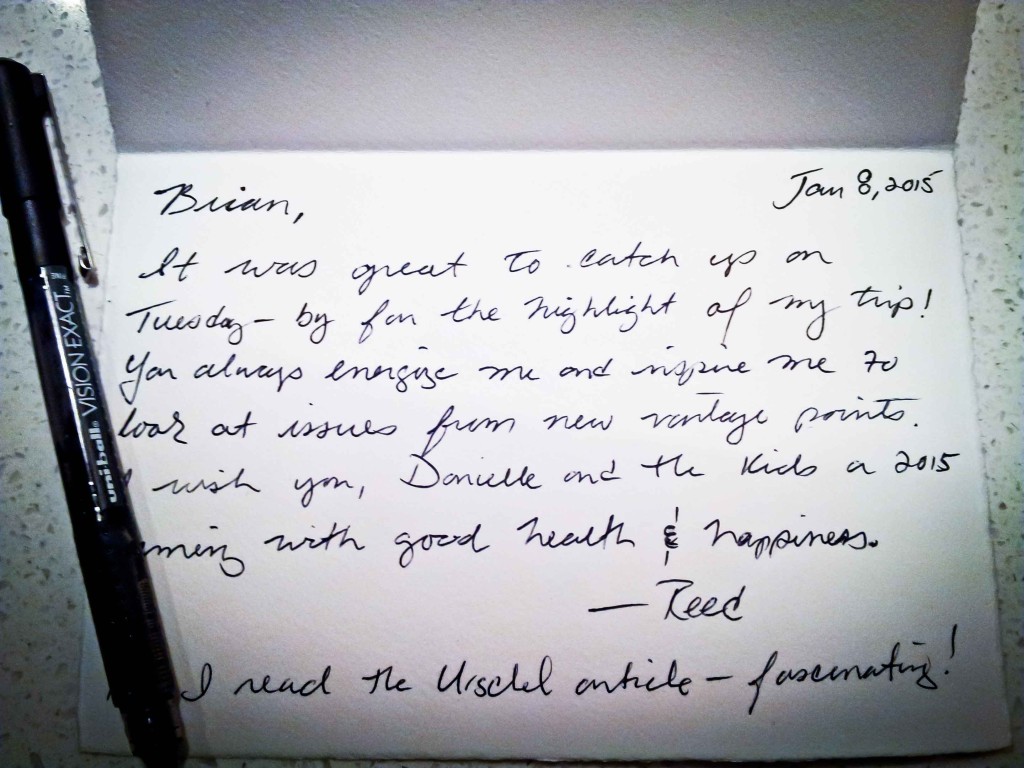 Brian,
Jan 8, 2015
It was great to catch up on
Tuesday – by far the highlight of my trip!
You always energize me and inspire me to
look at issues from new vantage points.
I wish you, Danielle and the kids a 2015
with good health & happiness.
— Reed
I read the article – fascinating!
uni-ball® VISION EXACT™
FINE